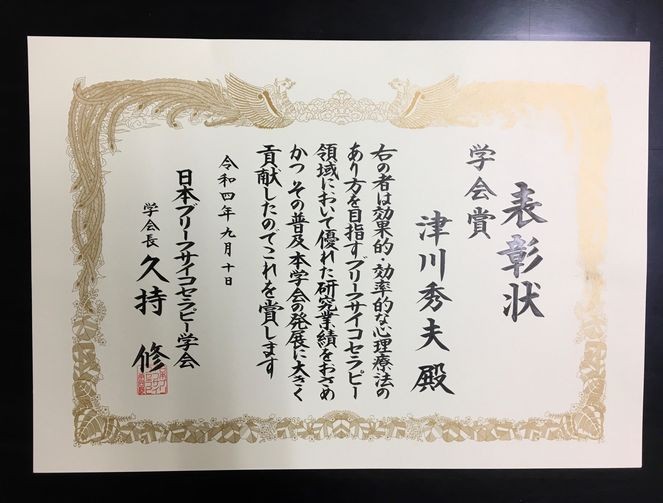 表彰状
学会賞
津川秀夫 殿
右の者は効果的・効率的な心理療法の
あり方を目指すブリーフサイコセラピー
領域において優れた研究業績をおさめ
かつ その普及 本学会の発展に大きく
貢献したのでこれを賞します
令和四年九月十日
日本ブリーフサイコセラピー学会
学会長 久持 修